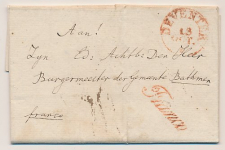 DEVENTER
13
Aan!
Zyn Ed: Achtb: Den Heer
Burgermeester der gemeente Bathmen
franco
Franco